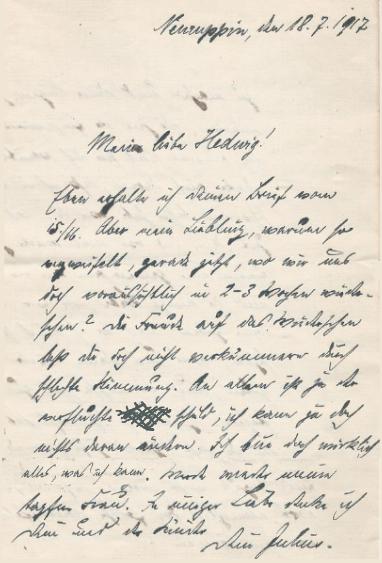 Neuruppin, den 18.7.1917
Meine liebe Hedwig!
Eben erhalte ich deinen Brief vom
15./16. Aber mein Liebling, warum so
verzweifelt, gerade jetzt, wo wir uns
doch voraussichtlich in 2-3 Wochen wieder-
sehen? Die Freude auf das Wiedersehen
laß dir doch nicht verkümmern durch
schlechte Stimmung. An allem ist ja der
verfluchte schuld, ich kann ja doch
nichts daran ändern. Ich tue doch wirklich
alles, was ich kann. Werde wieder meine
tapfere Frau. In inniger Liebe denke ich
Dein und der Kinder
Dein Julius.